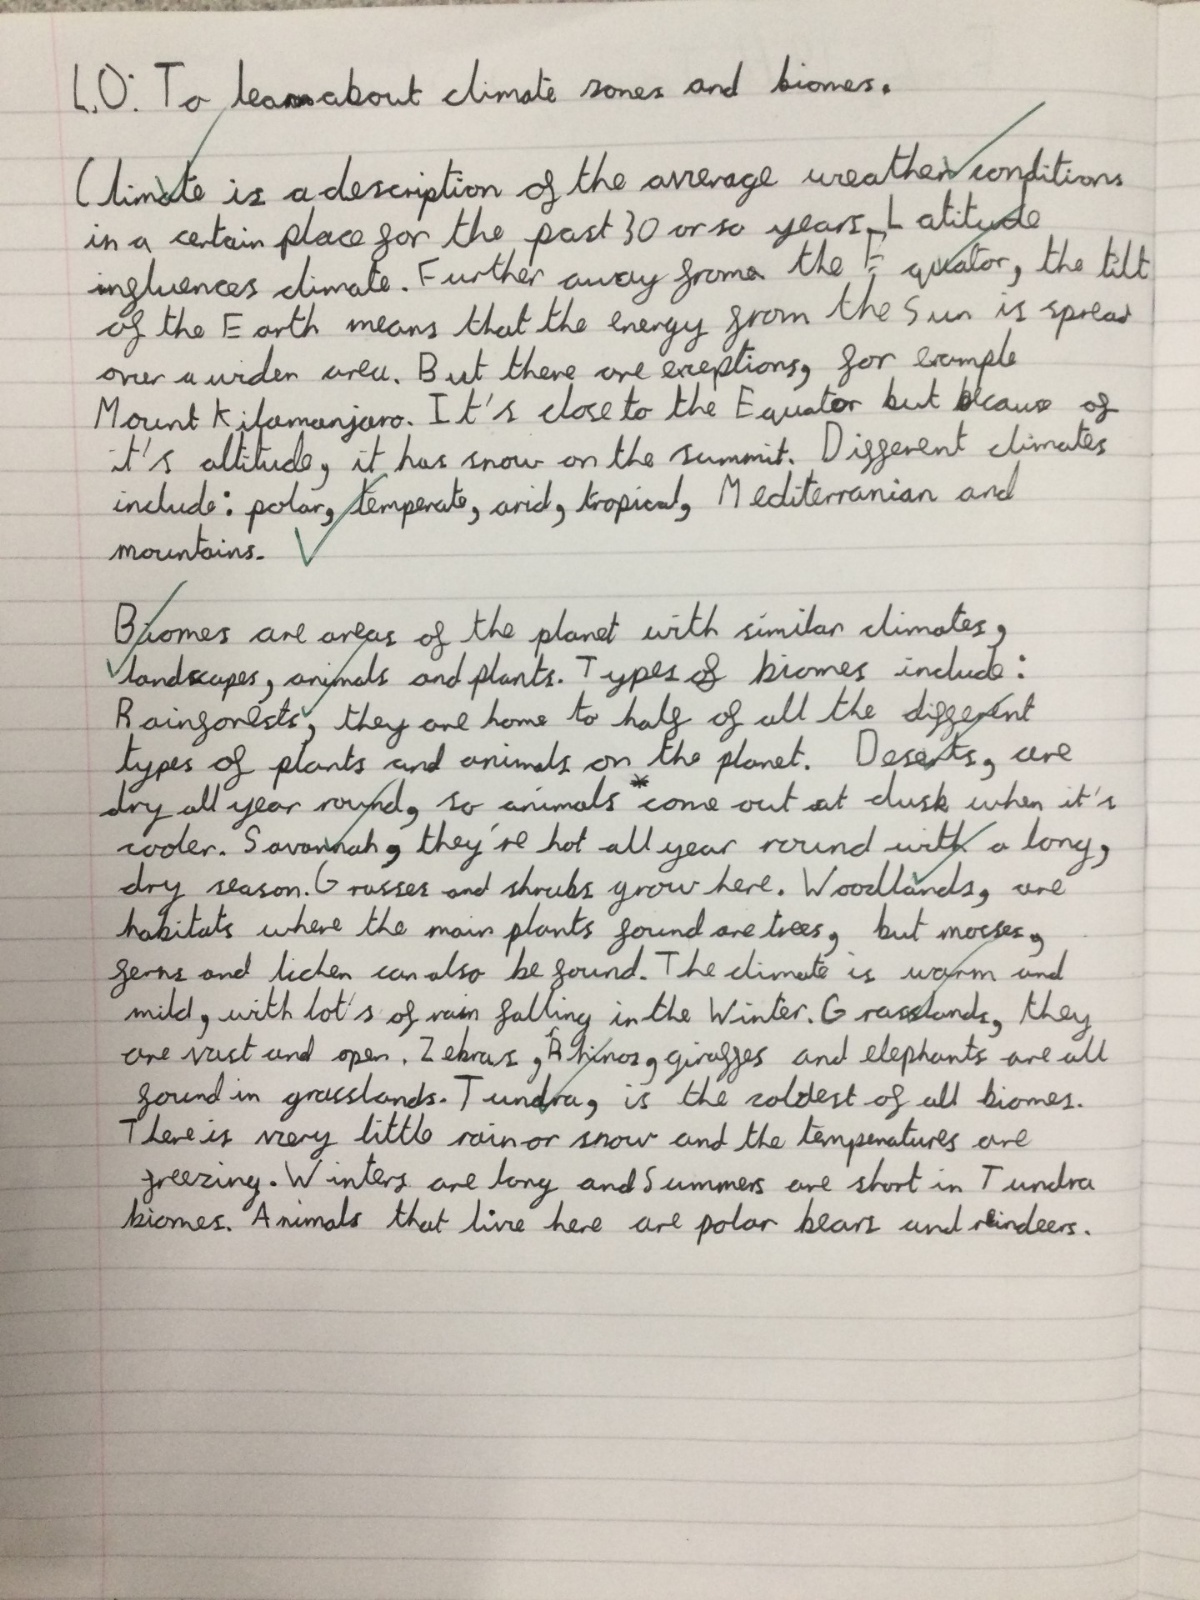 L.O: To learn about climate zones and biomes.
Climate is a description of the average weather conditions
in a certain place for the past 30 or so years. Latitude
influences climate. Further away from the Equator, the tilt
of the Earth means that the energy from the Sun is spread
over a wider area. But there are exeptions, for example
Mount Kilamanjaro. It's close to the Equator but because of
it's altitude, it has snow on the summit. Different climates
include: polar, temperate, arid, tropical, Mediterranian and
mountains.
Biomes are areas of the planet with similar climates,
landscapes, animals and plants. Types of biomes include:
Rainforests, they are home to half of all the different
types of plants and animals on the planet. Deserts, are
dry all year round, so animals * come out at dusk when it's
cooler. Savannah, they're hot all year round with a long,
dry season. Grasses and shrubs grow here. Woodlands, are
habitats where the main plants found are trees, but mosses,
ferns and lichen can also be found. The climate is warm and
mild, with lot's of rain falling in the Winter. Grasslands, they
are vast and open. Zebras, Rhinos, giraffes and elephants are all
found in grasslands. Tundra, is the coldest of all biomes.
There is very little rain or snow and the temperatures are
freezing. Winters are long and Summers are short in Tundra
biomes. Animals that live here are polar bears and reindeers.